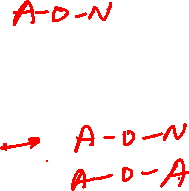 A-O-N
→ A-O-N
A-O-A